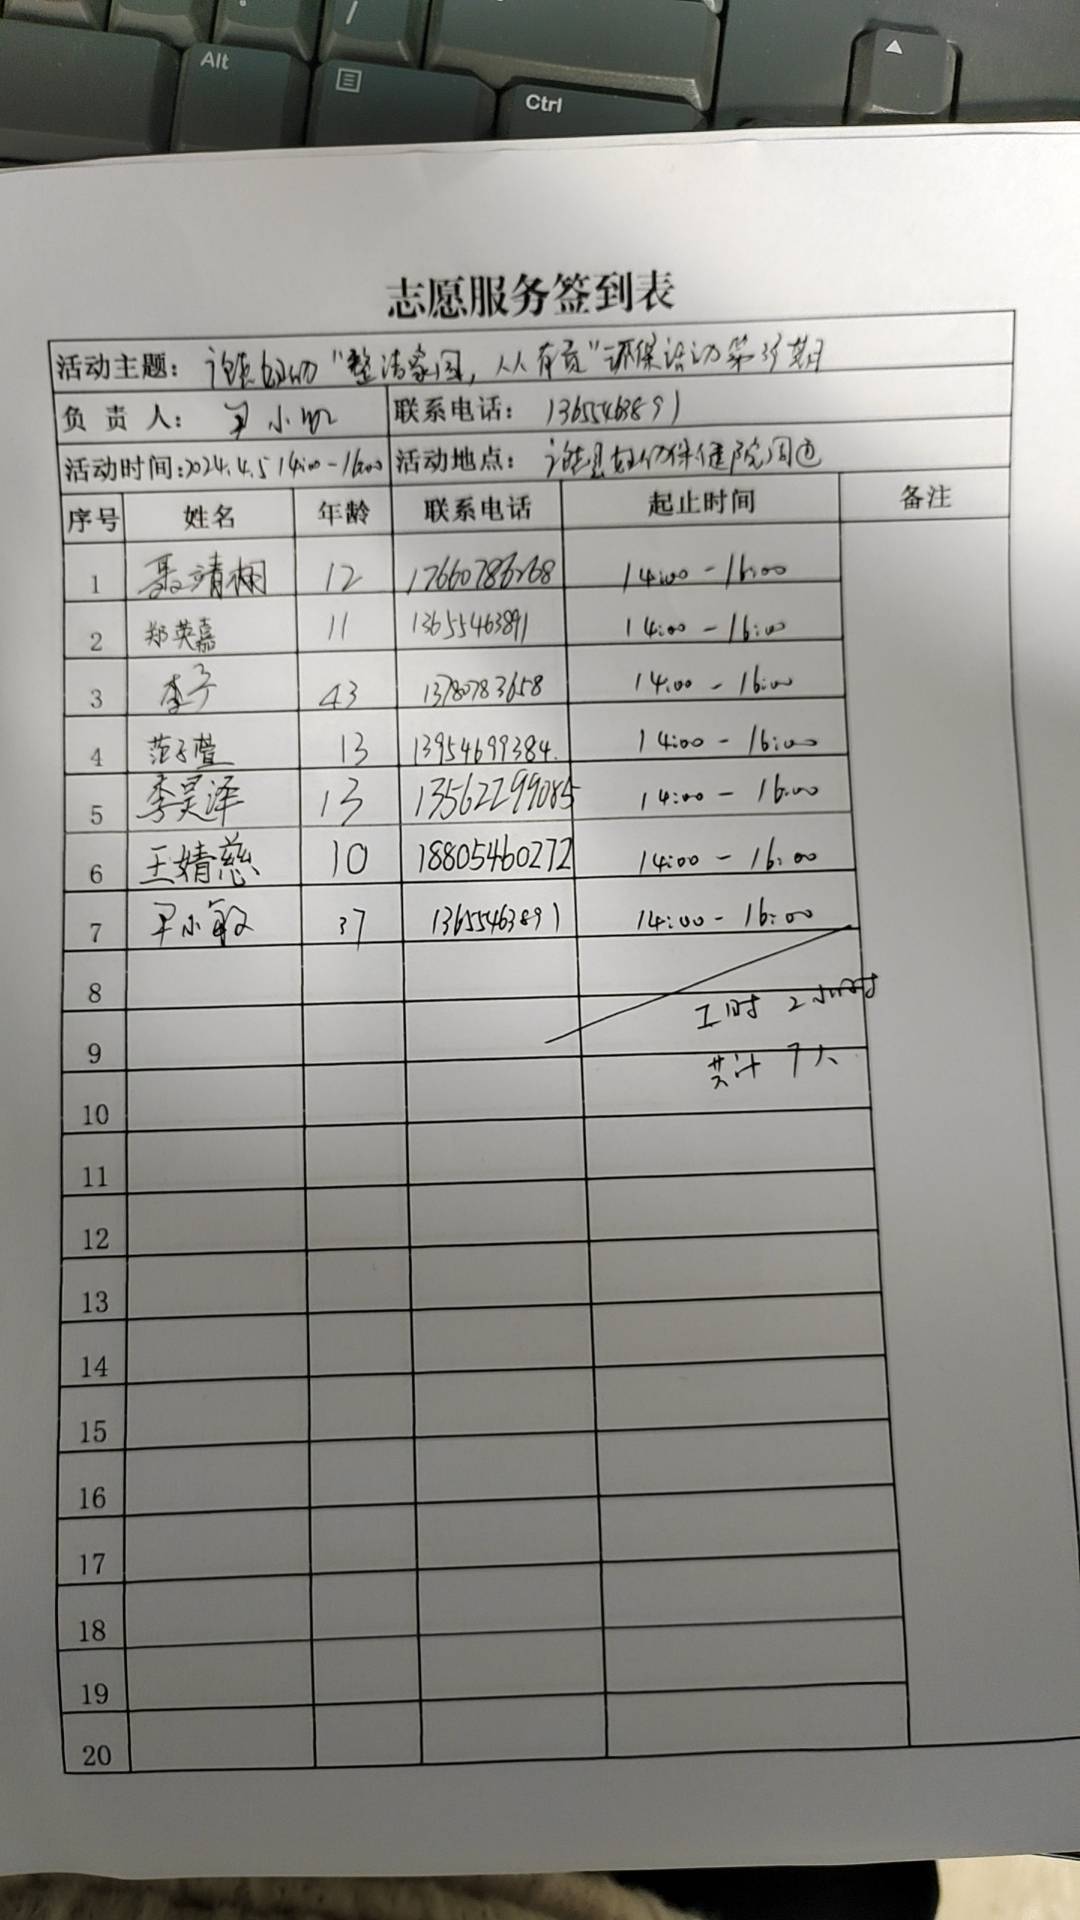 Alt
Ctrl
志愿服务签到表
活动主题： "整洁家园，人人有责"环保活动第 期
负责人： 尹小敏 联系电话： 13655463891
活动时间：2024.4.5 14:00-16:00 活动地点： 妇幼保健院周边
序号 姓名 年龄 联系电话 起止时间 备注
1 聂靖桐 12 17660786268 14:00-16:00
2 郑英嘉 11 13655463891 14:00-16:00
3 李 43 13780783658 14:00-16:00
4 范子萱 13 13954699384. 14:00-16:00
5 李昊泽 13 13562299085 14:00-16:00
6 王婧慈 10 18805460272 14:00-16:00
7 尹小敏 37 13655463891 14:00-16:00
8
工时 2小时
9
共计 7人
10
11
12
13
14
15
16
17
18
19
20